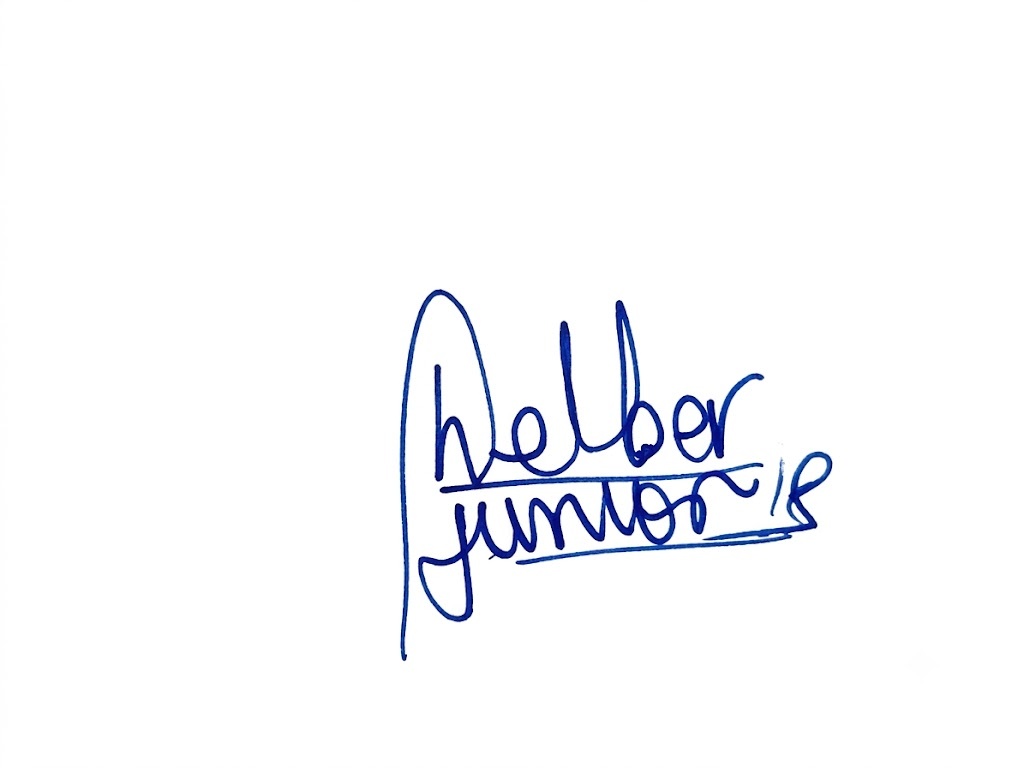 helber
junior '18